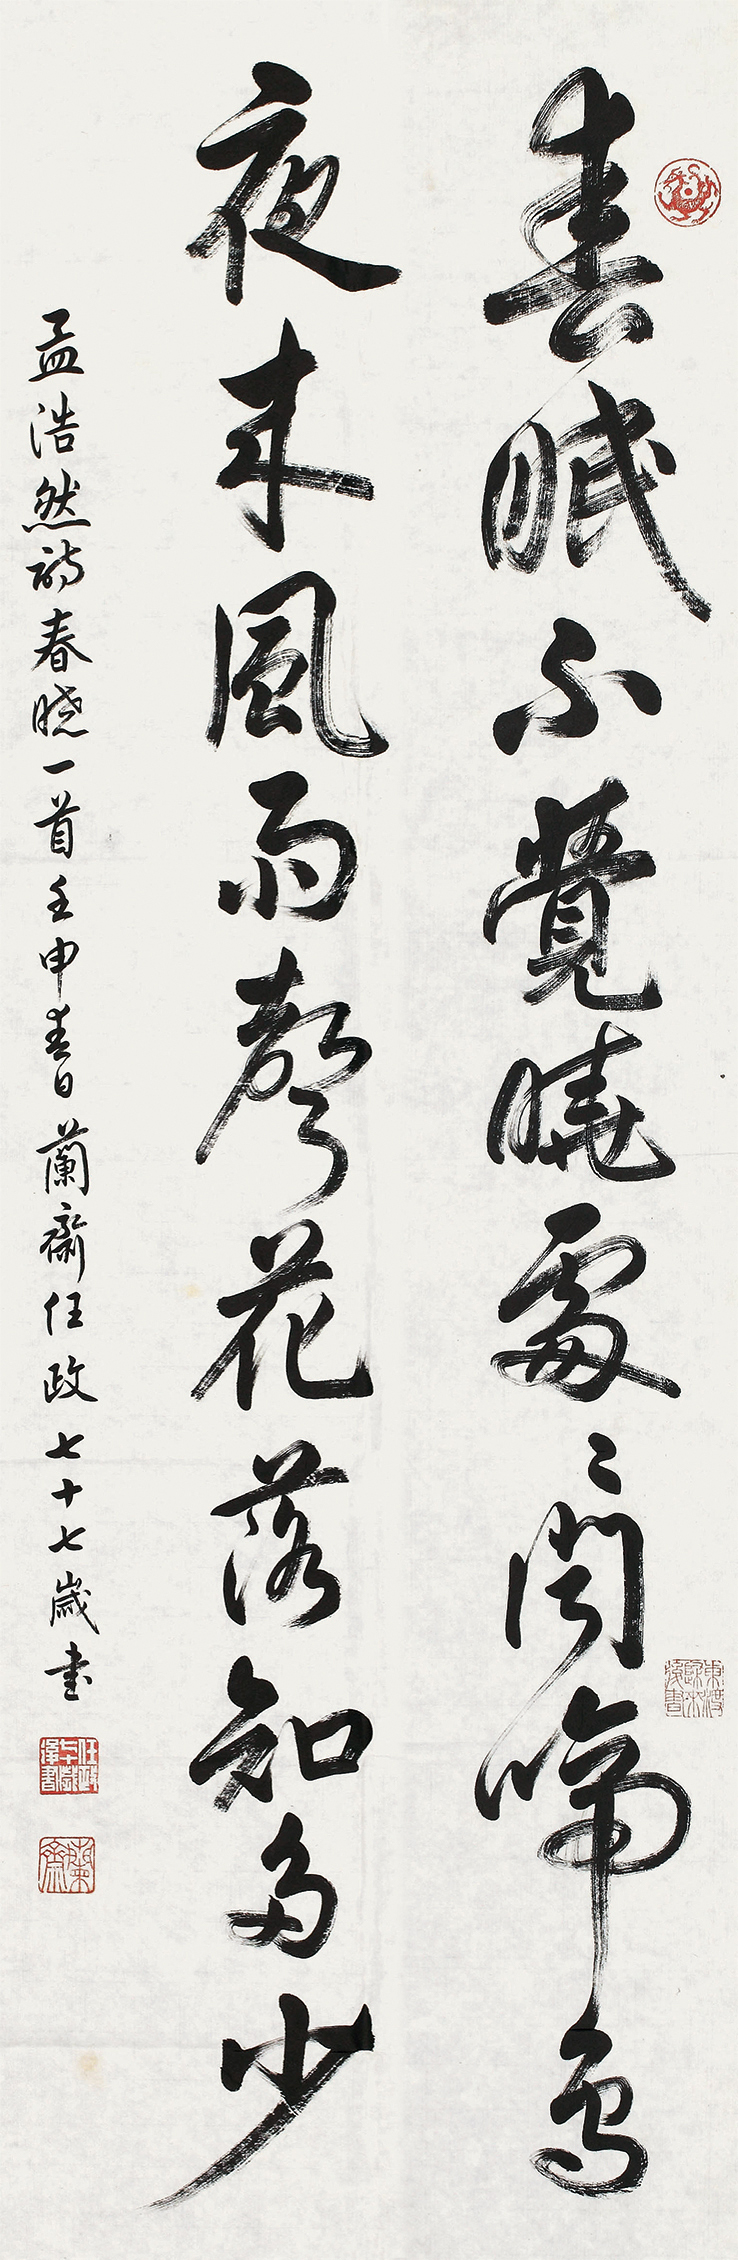 春眠不覺曉處〻聞啼鳥
夜来風雨聲花落知多少
孟浩然詩春曉一首壬申春日蘭齋任政七十七歲書
東渡歸來後書
蘭齋